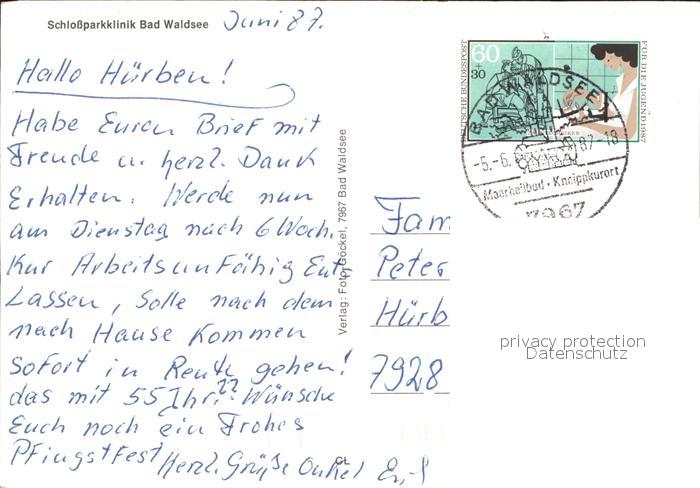 Schloßparkklinik Bad Waldsee
Juni 87.
Hallo Hürben!
Habe Euren Brief mit
Freude u. herzl. Dank
Erhalten. Werde nun
am Dienstag nach 6 Woch.
Kur Arbeitsunfähig Ent-
Lassen, Solle nach dem
nach Hause Kommen
Sofort in Rente gehen!
das mit 55 Ihr?? Wünsche
Euch noch ein Frohes
Pfingstfest Herzl. Grüße Onkel
Verlag: Foto-Göckel, 7967 Bad Waldsee
GL
DEUTSCHE BUNDESPOST
60
+
30
FÜR DIE JUGEND 1987
BAD WALDSEE
-5.-6. 87-18
Moorheilbad · Kneippkurort
7967
Fam
Peter
Hürb
7928
privacy protection
Datenschutz